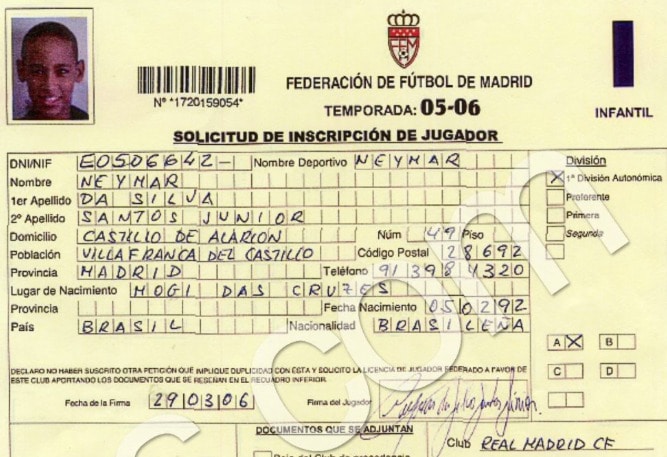 FEDERACIÓN DE FÚTBOL DE MADRID
Nº *1720159054*
TEMPORADA: 05-06
INFANTIL
SOLICITUD DE INSCRIPCIÓN DE JUGADOR
DNI/NIF E0506642- Nombre Deportivo NEYMAR División
Nombre NEYMAR 1ª División Autonómica
1er Apellido DA SILVA Preferente
2º Apellido SANTOS JUNIOR Primera
Domicilio CASTILLO DE ALARION Núm 49 Piso Segunda
Población VILLAFRANCA DEL CASTILLO Código Postal 28692
Provincia MADRID Teléfono 913984320
Lugar de Nacimiento MOGI DAS CRUZES
Provincia Fecha Nacimiento 050292
País BRASIL Nacionalidad BRASILEÑA
A X B
DECLARO NO HABER SUSCRITO OTRA PETICIÓN QUE IMPLIQUE DUPLICIDAD CON ÉSTA Y SOLICITO LA LICENCIA DE JUGADOR FEDERADO A FAVOR DE
ESTE CLUB APORTANDO LOS DOCUMENTOS QUE SE RESEÑAN EN EL RECUADRO INFERIOR.
C D
Fecha de la Firma 290306 Firma del Jugador
DOCUMENTOS QUE SE ADJUNTAN
Baja del Club de procedencia Club REAL MADRID CF
.com